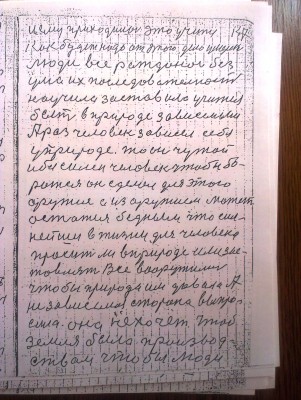 ному приходимы это учить 147
Как будем надо от этого дело
люди все рождены без
ума их последовательность
научила заставило учится
быть в природе зависимым
А раз человек зависим себя
у природе. то он чужой
и бы силен человек чтобы бо-
ротся он сделал для этого
оружие а из оружием может
остатся бедным что силь-
нейшим в жизни для человека
просит м в природе
Все вооружили
чтобы природа им давала А
независимая сторона выпро-
сила. она нехочет чтоб
земля было производ-
ствам чтобы люди